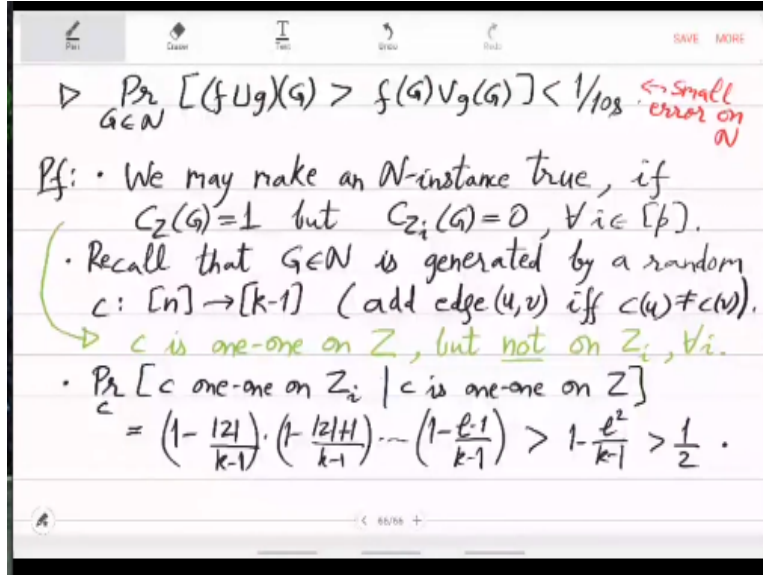 Pen Eraser Text Undo Redo SAVE MORE
▷ Pr_{G∈N} [(f⊔g)(G) > f(G)∨g(G)] < 1/10s. ← small error on N
Pf: • We may make an N-instance true, if
C_Z(G)=1 but C_{Z_i}(G)=0, ∀i∈[p].
• Recall that G∈N is generated by a random
c: [n]→[k-1] (add edge (u,v) iff c(u)≠c(v)).
▷ c is one-one on Z, but not on Z_i, ∀i.
• Pr_c [c one-one on Z_i | c is one-one on Z]
= (1-|Z|/(k-1))·(1-(|Z|+1)/(k-1))···(1-(ℓ-1)/(k-1)) > 1-ℓ²/(k-1) > 1/2.
< 66/66 +